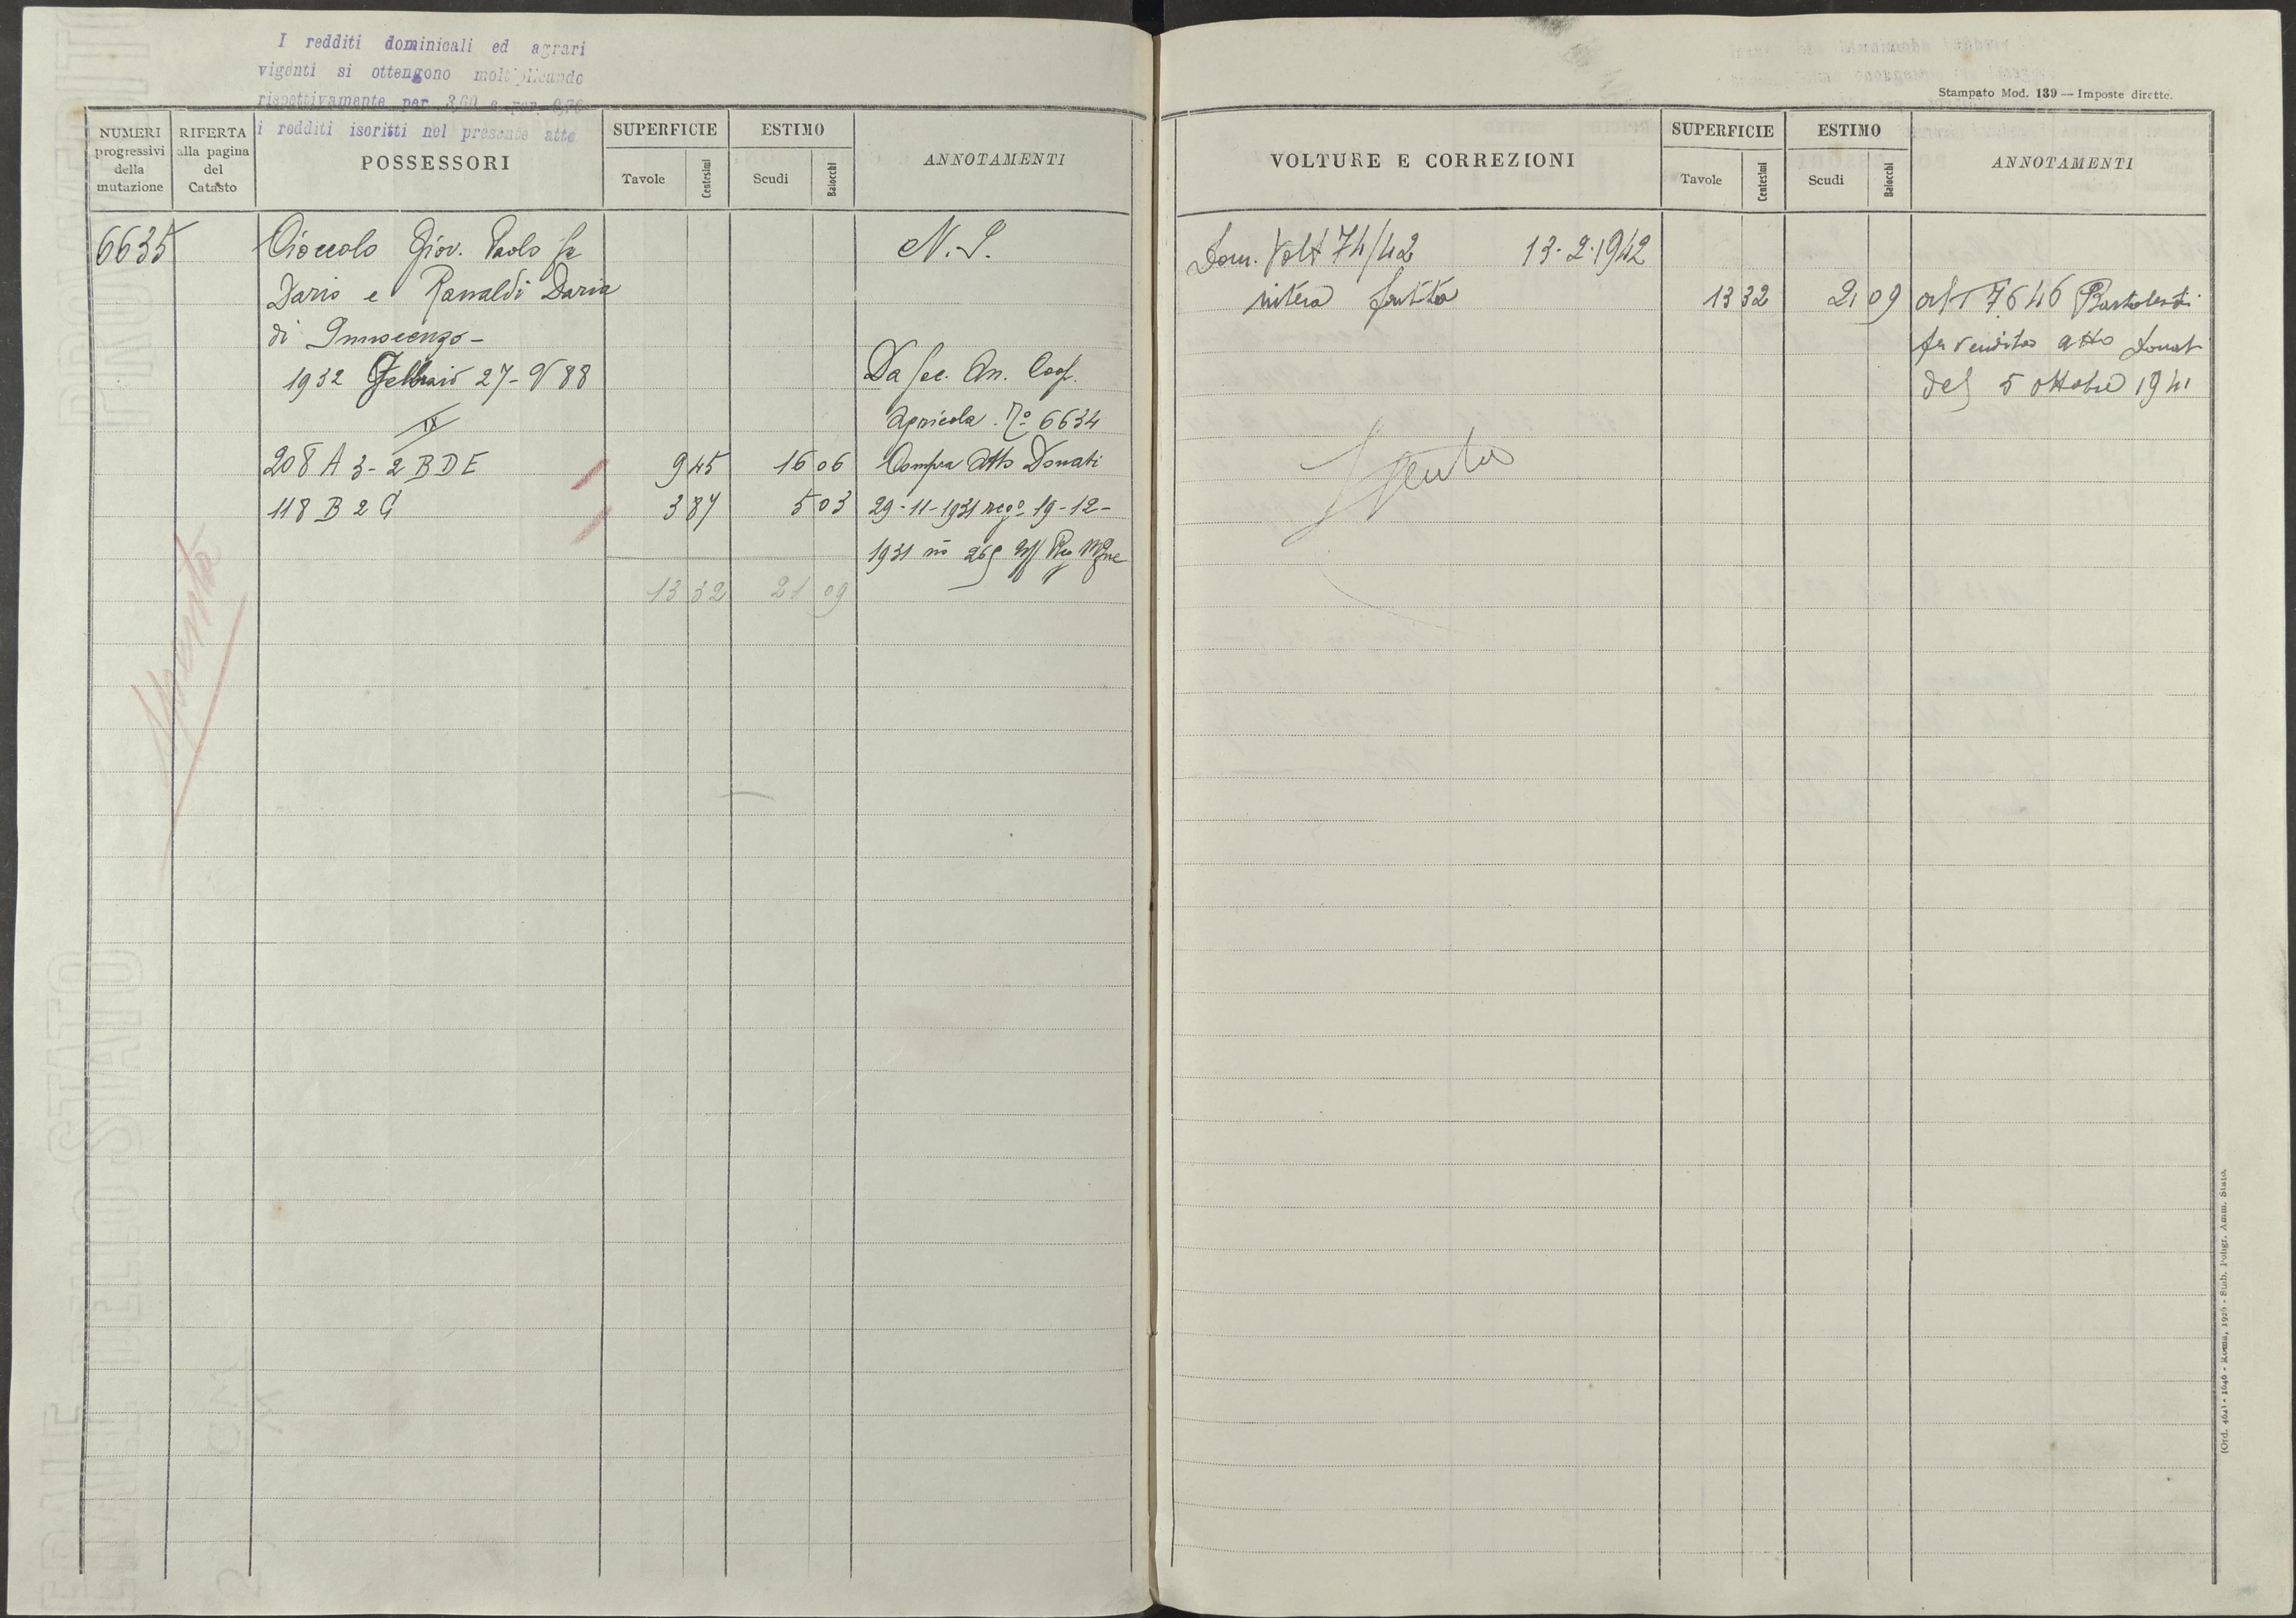 I redditi dominicali ed agrari
vigenti si ottengono moltiplicando
rispettivamente per 3,60 e per 0,70
i redditi iscritti nel presente atto
NUMERI
progressivi
della
mutazione
RIFERTA
alla pagina
del
Catasto
POSSESSORI
SUPERFICIE
Tavole
Centesimi
ESTIMO
Scudi
Baiocchi
ANNOTAMENTI
6635
Cioccolo Giov. Paolo fu
Dario e Ranaldi Daria
di Innocenzo -
1932 Febbraio 27 - N 88
IX
208 A 3 - 2 B D E 9 45 16 06
118 B 2 G 3 87 5 03
13 32 21 09
N. I.
Da Soc. An. Coop.
Agricola. No 6634
Compra Atto Donati
29-11-1931 rego 19-12-
1931 no 265 Uff Reg
Spento
Stampato Mod. 139 — Imposte dirette.
VOLTURE E CORREZIONI
SUPERFICIE
Tavole
Centesimi
ESTIMO
Scudi
Baiocchi
ANNOTAMENTI
Dom. Volt 74/42 13-2-1942
intera partita 13 32 21 09
art 7646
per vendita atto Donati
del 5 ottobre 1941
Spento
(Ord. 4641 - 1646 - Roma, 1926 - Stab. Poligr. Amm. Stato.